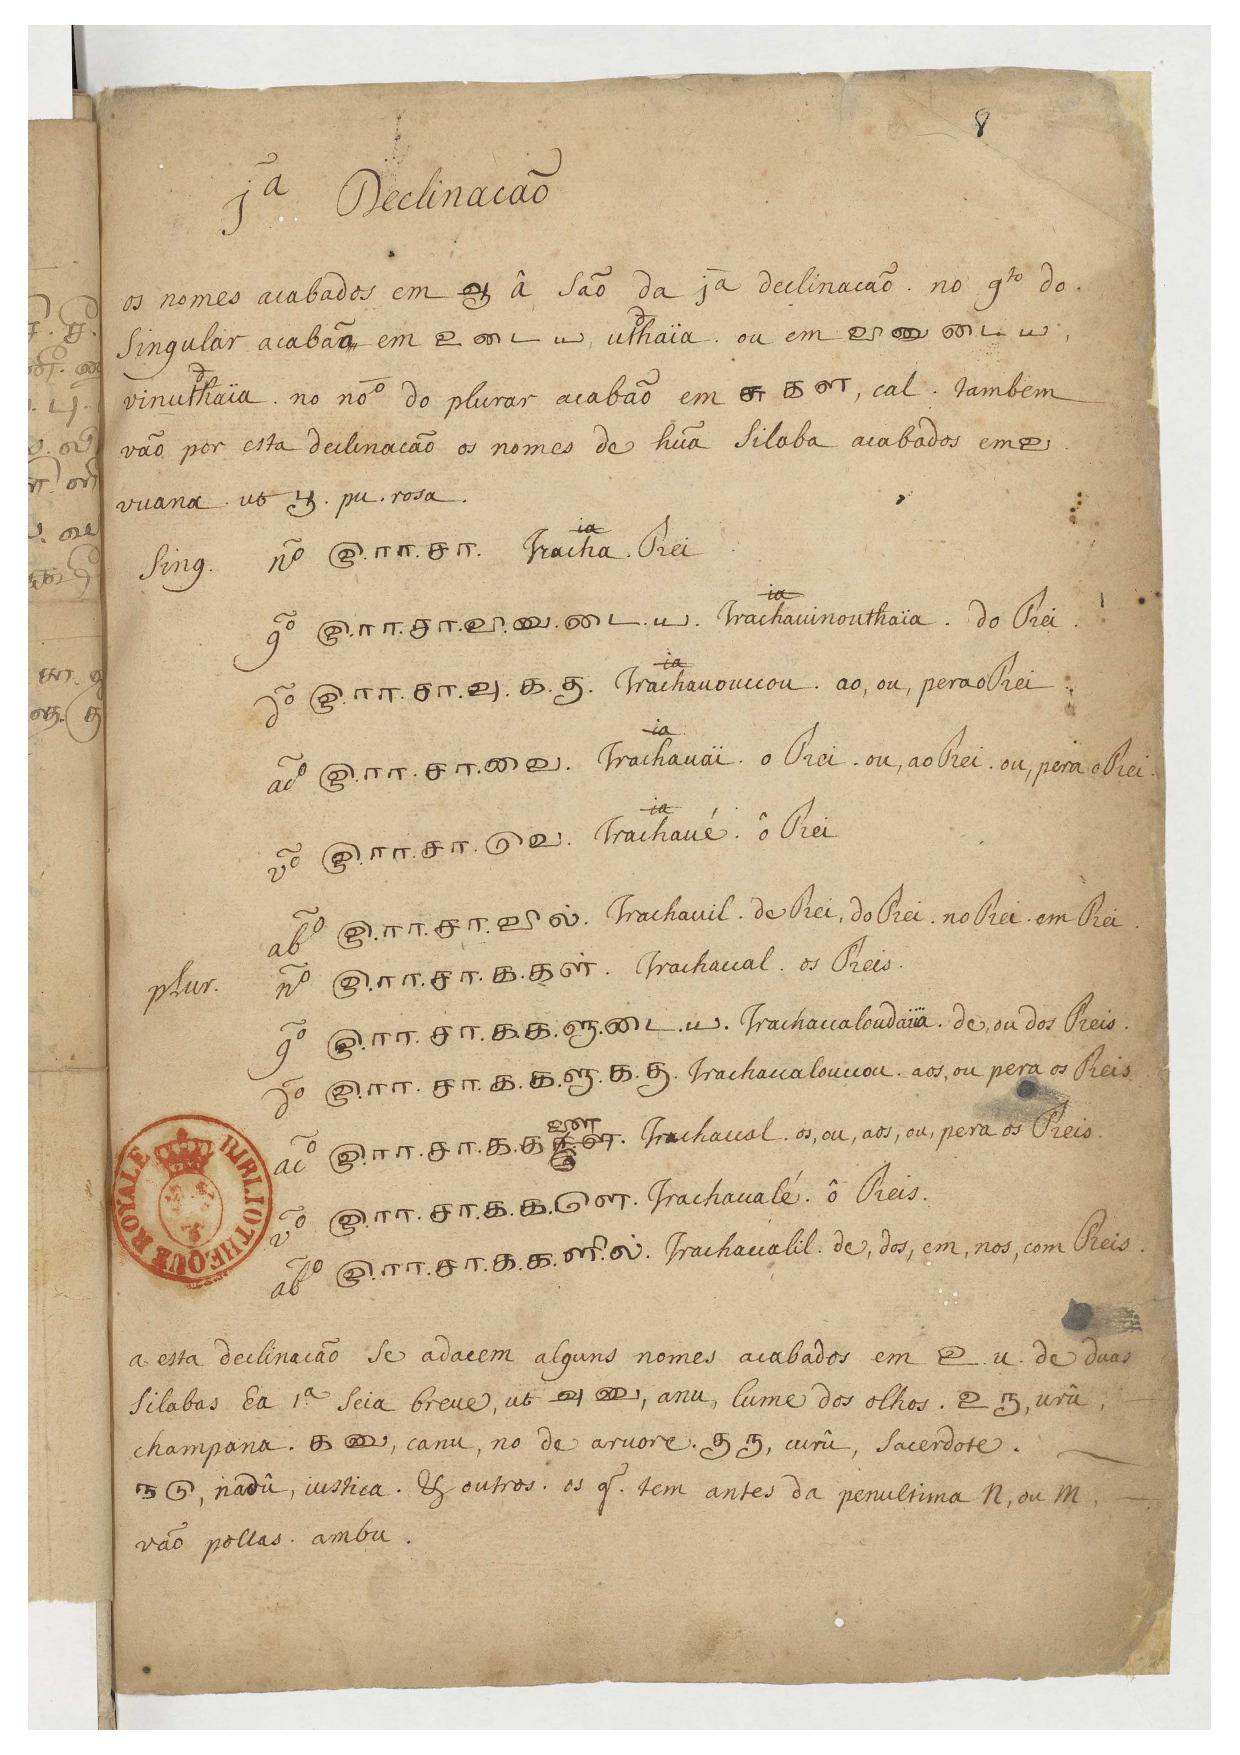 8
jã Declinacaõ
os nomes acabados em ஆ â saõ da jã declinacaõ. no gto do.
singular acabaõ em உடைய, uthaïa. ou em வினுடைய,
vinuthaïa. no nõ do plurar acabaõ em ககள, cal. tambem
vaõ por esta declinacaõ os nomes de hũa silaba acabados em உ.
vuana. ut பு. pu. rosa.
Sing. nõ இ.ரா.சா. Iracha. Rei
gõ இ.ரா.சா.வி.னு.டை.ய. Irachauinouthaïa. do Rei.
dõ இ.ரா.சா.வு.க.கு. Irachauouccou. ao, ou, pera o Rei.
acõ இ.ரா.சா.வை. Irachauaï. o Rei. ou, ao Rei. ou, pera o Rei.
võ இ.ரா.சா.வெ. Irachaué. ô Rei
abõ இ.ரா.சா.வில். Irachauil. de Rei, do Rei. no Rei. em Rei.
plur. nõ இ.ரா.சா.க.கள். Irachacal. os Reis.
gõ இ.ரா.சா.க.க.ளு.டை.ய. Irachacaloudaïa. de, ou dos Reis.
dõ இ.ரா.சா.க.க.ளு.க.கு. Irachacaloucou. aos, ou pera os Reis
acõ இ.ரா.சா.க.க Irachacal. os, ou, aos, ou, pera os Reis.
võ இ.ரா.சா.க.க.ளெ. Irachacalé. ô Reis.
abõ இ.ரா.சா.க.க.ளி.ல். Irachacalil. de, dos, em, nos, com Reis.
BIBLIOTHEQUE ROYALE
a esta declinacaõ se adacem alguns nomes acabados em உ. u. de duas
silabas Ea 1ª seia breue, ut அணு, anu, lume dos olhos. உரு, urû,
champana. கணு, canu, no de aruore. குரு, curû, sacerdote.
நடு, nadû, iustica. & outros. os q. tem antes da penultima n, ou m,
vaõ pollas. ambu.